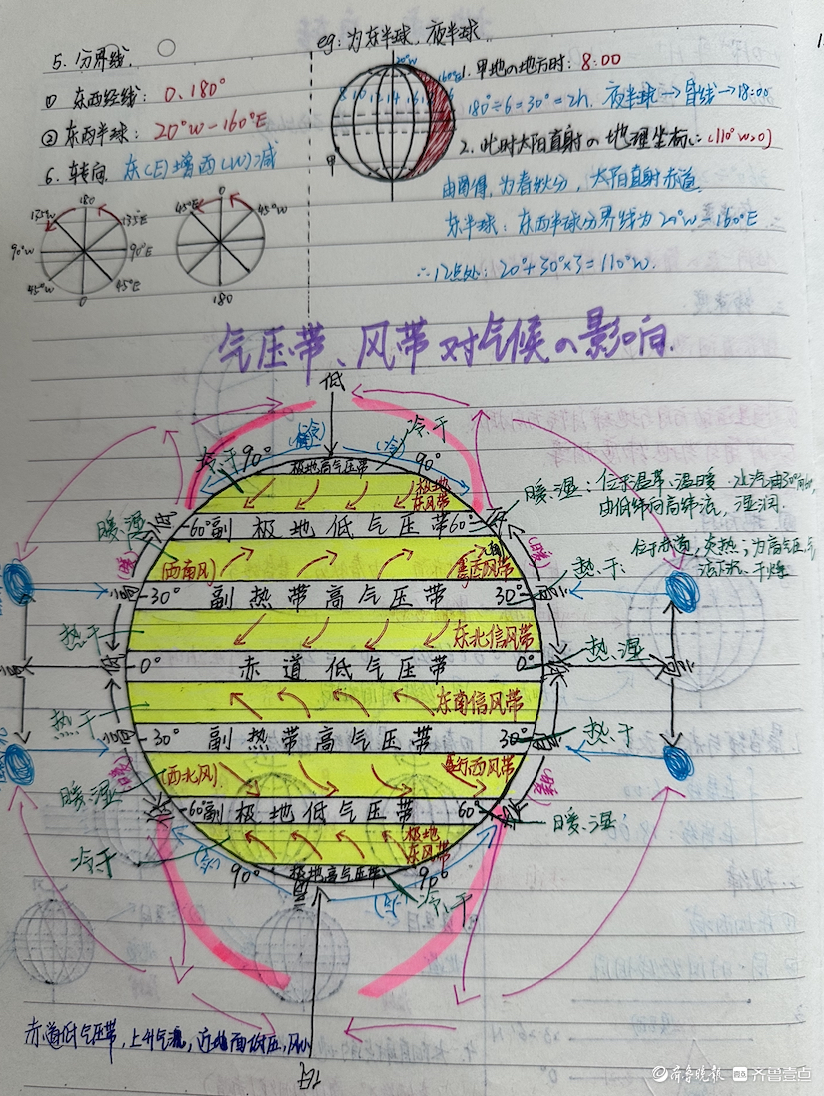 5. 分界线.
① 东西经线: 0、180°
② 东西半球: 20°W-160°E
6. 转向 东(E)增西(W)减
180
135°W
135°E
90°W
90°E
45°W
45°E
0
0
45°E
45°W
180
eg: 为东半球, 夜半球
20°W
160°E
8 10 12 14 16
甲
1. 甲地の地方时: 8:00
180°÷6=30°=2h. 夜半球→昏线→18:00
2. 此时太阳直射の地理坐标: (110°W,0)
由图得, 为春秋分, 太阳直射赤道.
东半球: 东西半球分界线为20°W-160°E
∴12点处: 20°+30°×3=110°W.
气压带、风带对气候の影响.
低
冷干
(冷)
冷干
90°
极地高气压带
90°
极地
东风带
暖湿
60°副极地低气压带60°
暖、湿: 位于温带, 温暖. 水汽由30°向60°,
由低纬向高纬流, 湿润.
(西南风)
盛行西风带
(暖)
30°
副热带高气压带
30°
热、干:
热干
东北信风带
0°
赤道低气压带
0°
热、湿
热干
东南信风带
30°
副热带高气压带
30°
热、干
(西北风)
盛行西风带
暖湿
60°副极地低气压带60°
暖、湿
冷干
极地
东风带
90°
极地高气压带
90°
冷、干
赤道低气压带, 上升气流, 近地面低压, 风小
齐鲁晚报 齐鲁壹点